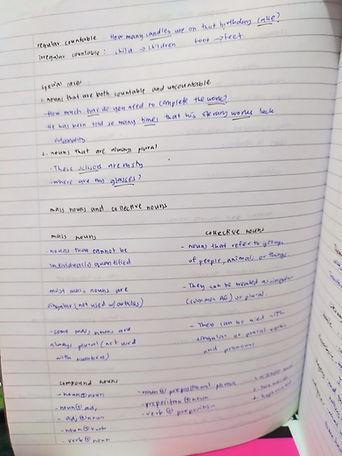 regular countable How many candles are on that birthday cake?
irregular countable: child → children foot → feet
special cases
1. nouns that are both countable and uncountable
- How much time do you need to complete the work?
- It has been told so many times that his literary works lack
2. nouns that are always plural
- These scissors are rusty
- Where are my glasses?
mass nouns and collective nouns
mass nouns
- nouns that cannot be
individually quantified
most mass nouns are
singular (not used w/ articles)
- some mass nouns are
always plural (not used
with numbers)
collective nouns
- nouns that refer to groups
of people, animals, or things.
- They can be treated as singular
(common AE) or plural.
- They can be used with
singular or plural verbs
and pronouns
compound nouns
- noun + noun
- noun + adj
- adj + noun
- noun + verb
- verb + noun
- noun + prepositional phrase
- preposition + noun
- verb + preposition